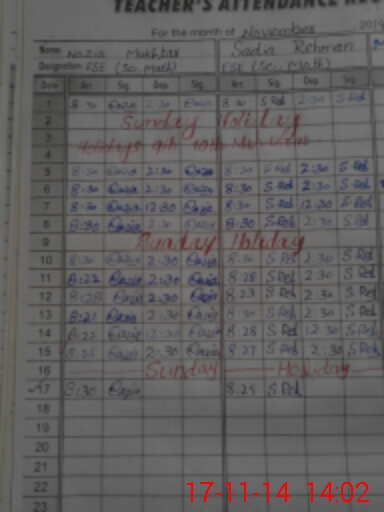 TEACHER'S ATTENDANCE
For the month of November 2014
Name: Nazia Mukhtar Sadia Rehman
Designation: ESE (Sc. Math) ESE (Sc. Math)
Date Arr. Sig. Dep. Sig. Arr. Sig. Dep. Sig.
1 8:30 2:30 8:30 S Reh 2:30 S Reh
2 Sunday Holiday
3 Holidays 9th 10th Muharram
4
5 8:30 2:30 8:30 S Reh 2:30 S Reh
6 8:30 2:30 8:30 S Reh 2:30 S Reh
7 8:30 12:30 8:30 S Reh 12:30 S Reh
8 8:30 2:30 8:30 S Reh 2:30 S Reh
9 Sunday Holiday
10 8:30 2:30 8:30 S Reh 2:30 S Reh
11 8:27 2:30 8:28 S Reh 2:30 S Reh
12 8:28 2:30 8:23 S Reh 2:30 S Reh
13 8:21 2:30 8:30 S Reh 2:30 S Reh
14 8:22 12:30 8:28 S Reh 12:30 S Reh
15 8:25 2:30 8:27 S Reh 2:30 S Reh
16 Sunday Holiday
17 8:30 8:25 S Reh
18
19
20
21
22
23
17-11-14 14:02